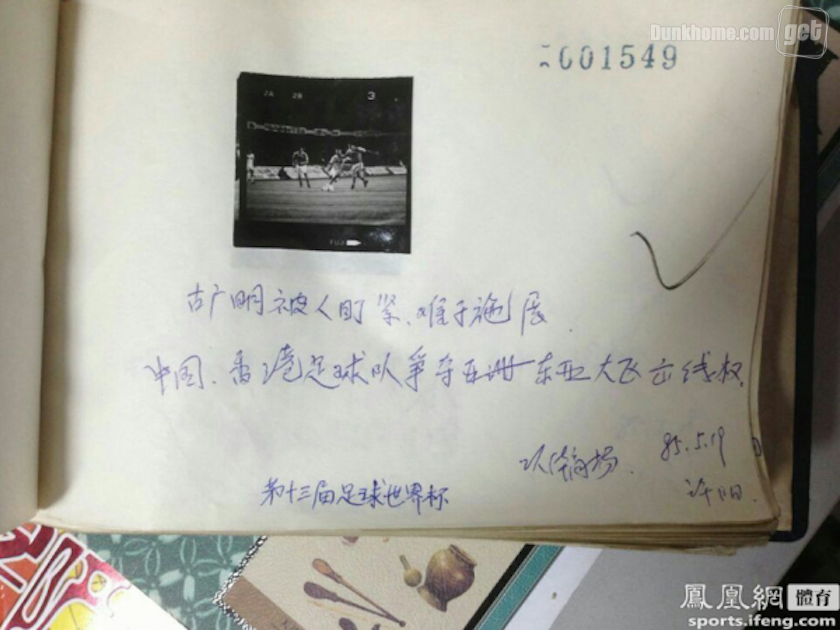 Dunkhome.com get
001549
2A 28 3
古广明被人盯紧、难于施展.
中国、香港足球队争夺亚洲东亚大区出线权.
85.5.19
第十三届足球世界杯
鳳凰網 體育
sports.ifeng.com